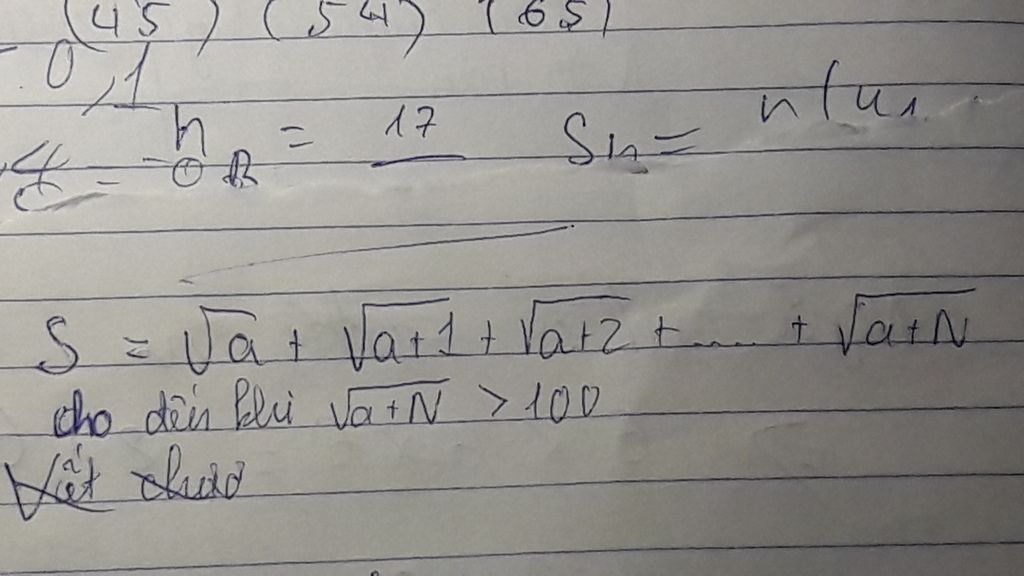 (45) (54) (65)
0,1
h = 17 Sn = n(u1
S = √a + √a+1 + √a+2 + .... + √a+N
cho đến khi √a+N > 100
Viết chươ